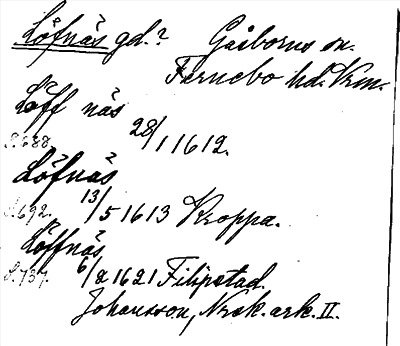 Löfnäs gd.? Gåsborns sn.
Färnebo hd. Vrm.
Löff näs
S.688. 28/1 1612.
Löfnäs
S.692. 13/5 1613 Kroppa.
Löffnäs
S.737. 6/2 1621 Filipstad.
Johansson, Noraskog. ark. II.